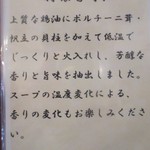 上質な鶏油にポルチーニ茸・
帆立の貝柱を加えて低温で
じっくりと火入れし、芳醇な
香りと旨味を抽出しました。
スープの温度変化による、
香りの変化もお楽しみください。